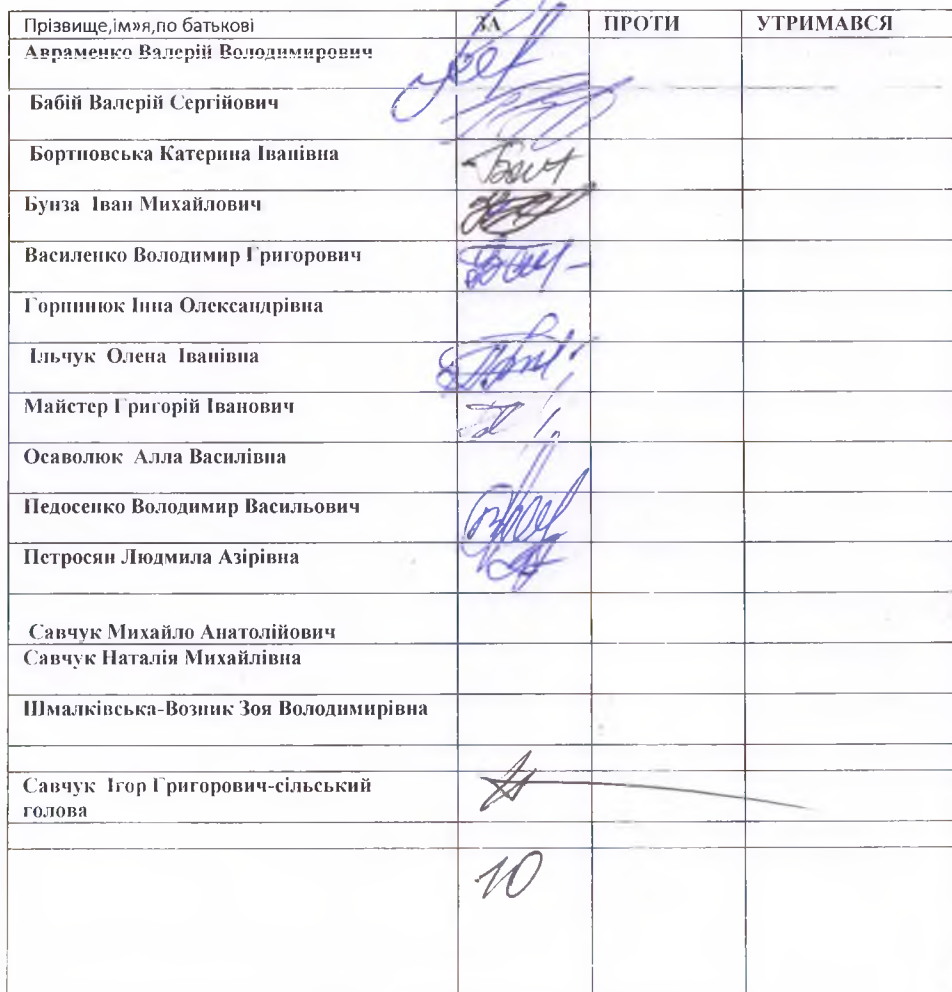 Прізвище,ім»я,по батькові ЗА ПРОТИ УТРИМАВСЯ
Авраменко Валерій Володимирович
Бабій Валерій Сергійович
Бортновська Катерина Іванівна
Бунза Іван Михайлович
Василенко Володимир Григорович
Горпинюк Інна Олександрівна
Ільчук Олена Іванівна
Майстер Григорій Іванович
Осаволюк Алла Василівна
Педосенко Володимир Васильович
Петросян Людмила Азірівна
Савчук Михайло Анатолійович
Савчук Наталія Михайлівна
Шмалківська-Возник Зоя Володимирівна
Савчук Ігор Григорович-сільський
голова
10